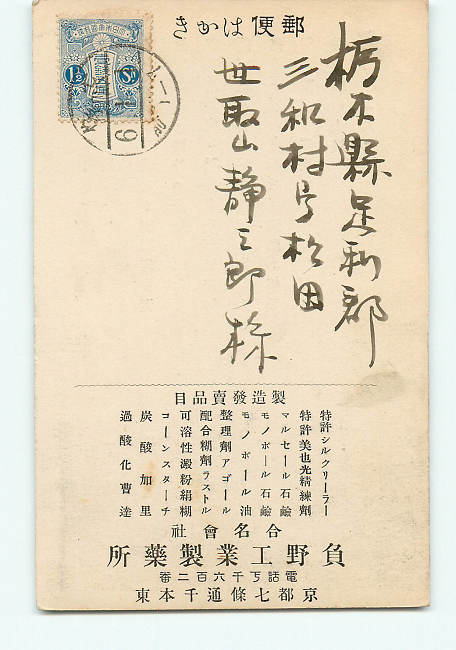 郵便はかき
1½ Sn.
栃木縣足利郡
三和村字松田
世取山静三郎様
製造發賣品目
特許シルクリーラー
特許美也光精練劑
マルセール石鹼
モノポール石鹼
モノポール油
整理劑アゴール
配合糊劑ラストル
可溶性澱粉絹糊
コーンスターチ
炭酸加里
過酸化曹達
合名會社
負野工業製藥所
電話下千六百二番
京都七條通千本東